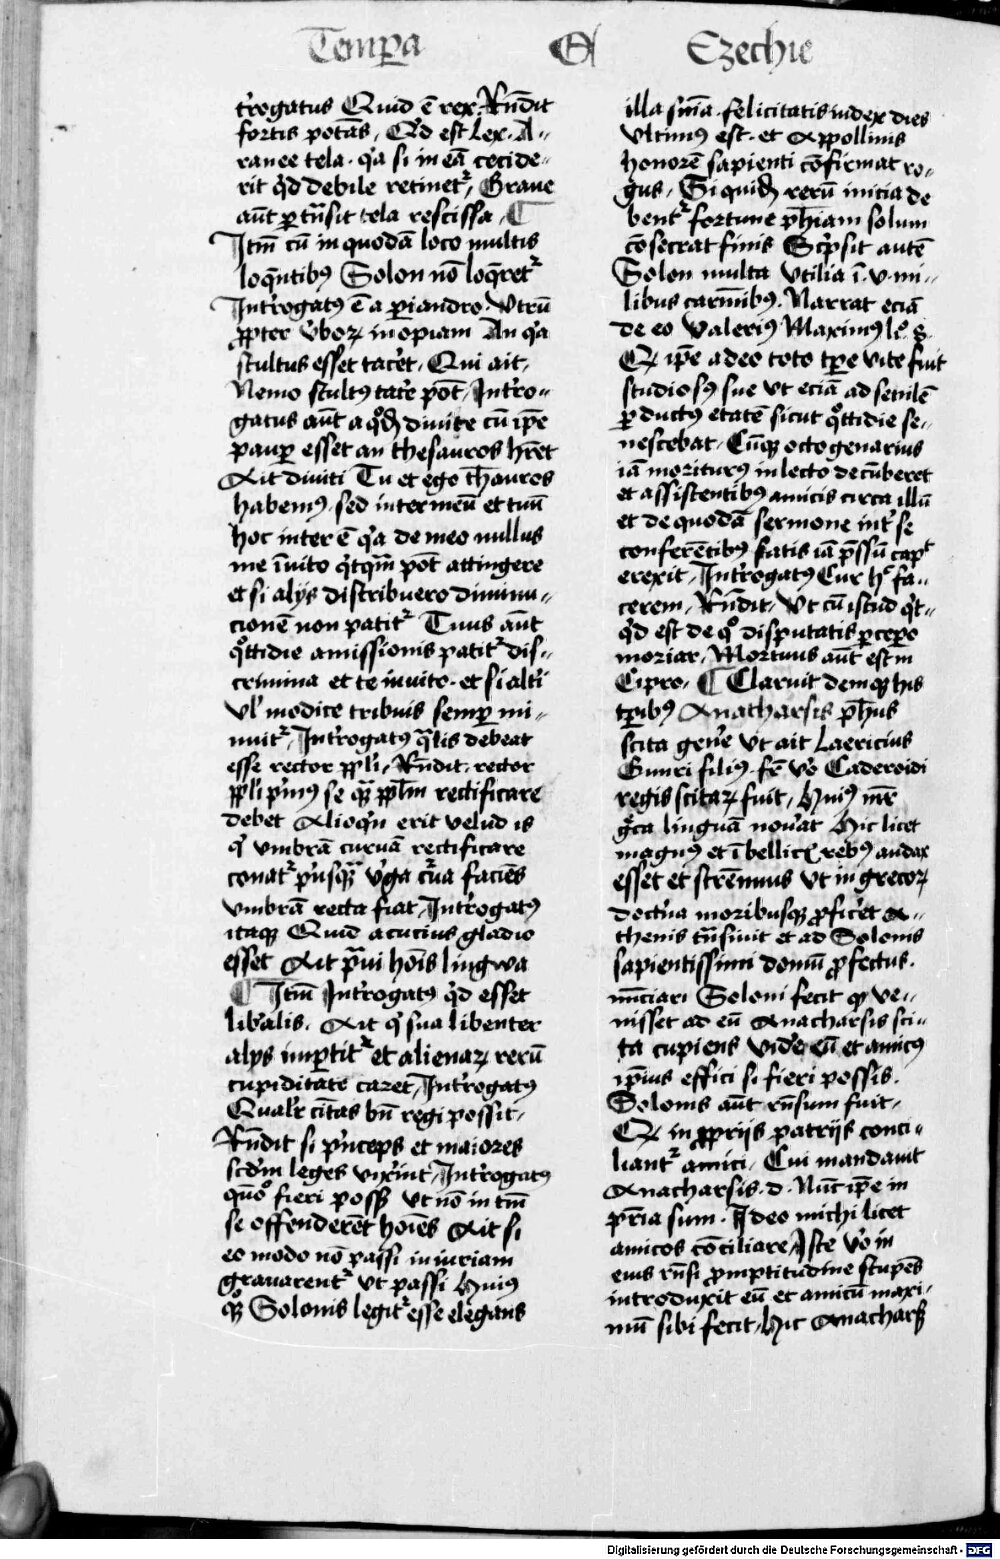 Temꝑa
Ezechie
t'rogatus Quid ē rex. Rn̄dit
fortis potās. Qd est Lex. A-
ranee tela. q'a si in eā cecide-
rit q̇d debile retinetᷣ. Graue
aūt ꝑ tn̄sit tela rescissa. ¶
Itm̄ cū in quodā loco multis
loqn̄tibꝰ Solon nō loqr̄etᷣ
Int'rogatꝰ ē a ꝑiandro. Vtrū
ꝓpter v'boꝝ inopiam An q'a
stultus esset tac'et. Qui ait.
Nemo stultꝰ tac'e pōt. Int'ro-
gatus aūt a qͦdā diuite cū ip̄e
pauꝑ esset an thesauros hr̄et
Ait diuiti Tu et ego th̄auros
habemꝰ. sed inter meū et tuū
hoc inter ē q'a de meo nullus
me īuito q'tqm̄ pōt attingere
et si alijs distribuero diminu-
cionē non patitᷣ Tuus aūt
qͦttidie amissionis patitᷣ dis-
crimina et te inuito. et si alt'i
vl' modice tribuis semꝑ mi-
nuitᷣ. Int'rogatꝰ qͣlis debeat
esse rector ꝓpli. Rn̄dit. rector
ppl̄i p'mꝰ se qͣꝫ ppl̄m rectificare
debet Alioqͥn erit velud is
qͥ vmbrā curuā rectificare
conatᷣ p'usqͣꝫ v'ga c'ua faciēs
vmbrā recta fiat. Int'rogatꝰ
itaqꝫ Quid acucius gladio
esset Ait pͣui hōis lingwa
¶ Itm̄ Int'rogatꝰ q̇d esset
lib'alis. Ait qͥ sua libenter
alijs imꝑtitᷣ et alienaꝝ rerū
cupiditate caret. Int'rogatꝰ
Qualr̄ ciītas bn̄ regi possit.
Rn̄dit si p'nceps et maiores
scd̄m leges vixīnt. Int'rogatꝰ
quōͦ fieri possꝫ vt nō in tm̄
se offenderēt hoīes Ait si
eo modo nō passi iniuriam
grauarentᷣ vt passi Huiꝰ
qͦꝫ Solonis legitᷣ esse elegans
illa sn̄ia. felicitatis iudex dies
vltimꝰ est. et Appollinis
honorē sapienti cōfirmat ro-
gus. Siquidē rerū inicia de
bentᷣ fortune ph̄iam solum
cōsecrat finis Sc'psit autē
Solon multa vtilia ī. v. mi-
libus carmībꝰ. Narrat eciā
de eo Valeriꝰ Maximꝰ lͦ. 8.
Qꝫ ip̄e adeo toto tꝑe vite fuit
studiosꝰ sue vt eciā ad senilē
ꝑductus etatē sicut qͦttidie se-
nescebat. Cūqꝫ octogenarius
iā moriturꝰ in lecto decūberet
et assistentibꝰ amicis circa illū
et de quodā sermone int' se
conferētibꝰ fatis iā p̄ssū capᵗ
erexit. Int'rogatꝰ Cur hͦ fa-
cerem. Rn̄dit. Vt cū istud q't-
q̇d est de qͦ disputatis ꝑcepo
moriar. Mortuus aūt est in
Cipro. ¶ Claruit demqꝫ his
tꝑibꝰ Anacharsis ph̄us
scita gen'e vt ait Laercius
Gnuri filiꝰ. fr̄ v'o Caderoidi
regis scitaꝝ fuit. Huiꝰ mr̄e
gͣca linguā nou'at Hic licet
magnꝰ et ī bellicꝭ rebꝰ audax
esset et strēnuus vt in grecoꝝ
doct'na moribusqꝫ ꝓfic'et a-
thenis tn̄siuit et ad Solonis
sapientissimi domū ꝓfectus.
nūciari Soloni fecit qꝫ ve-
nisset ad eū Anacharsis sci-
ta cupiens vid'e eū et amicꝰ
ip̄ius effici si fieri possis.
Solonis aūt rn̄sum fuit.
Qꝫ in ꝓprijs patrijs conci-
liantᷣ amici. Cui mandauit
Anacharsis. d. Nūc ip̄e in
pr̄ia sum. Ideo michi licet
amicos cōciliare. Iste v'o in
eius rn̄si ꝓmptitudine stupēs
introduxit eū et amicū maxi-
mū sibi fecit. Hic Anacharsꝭ
Digitalisierung gefördert durch die Deutsche Forschungsgemeinschaft - DFG